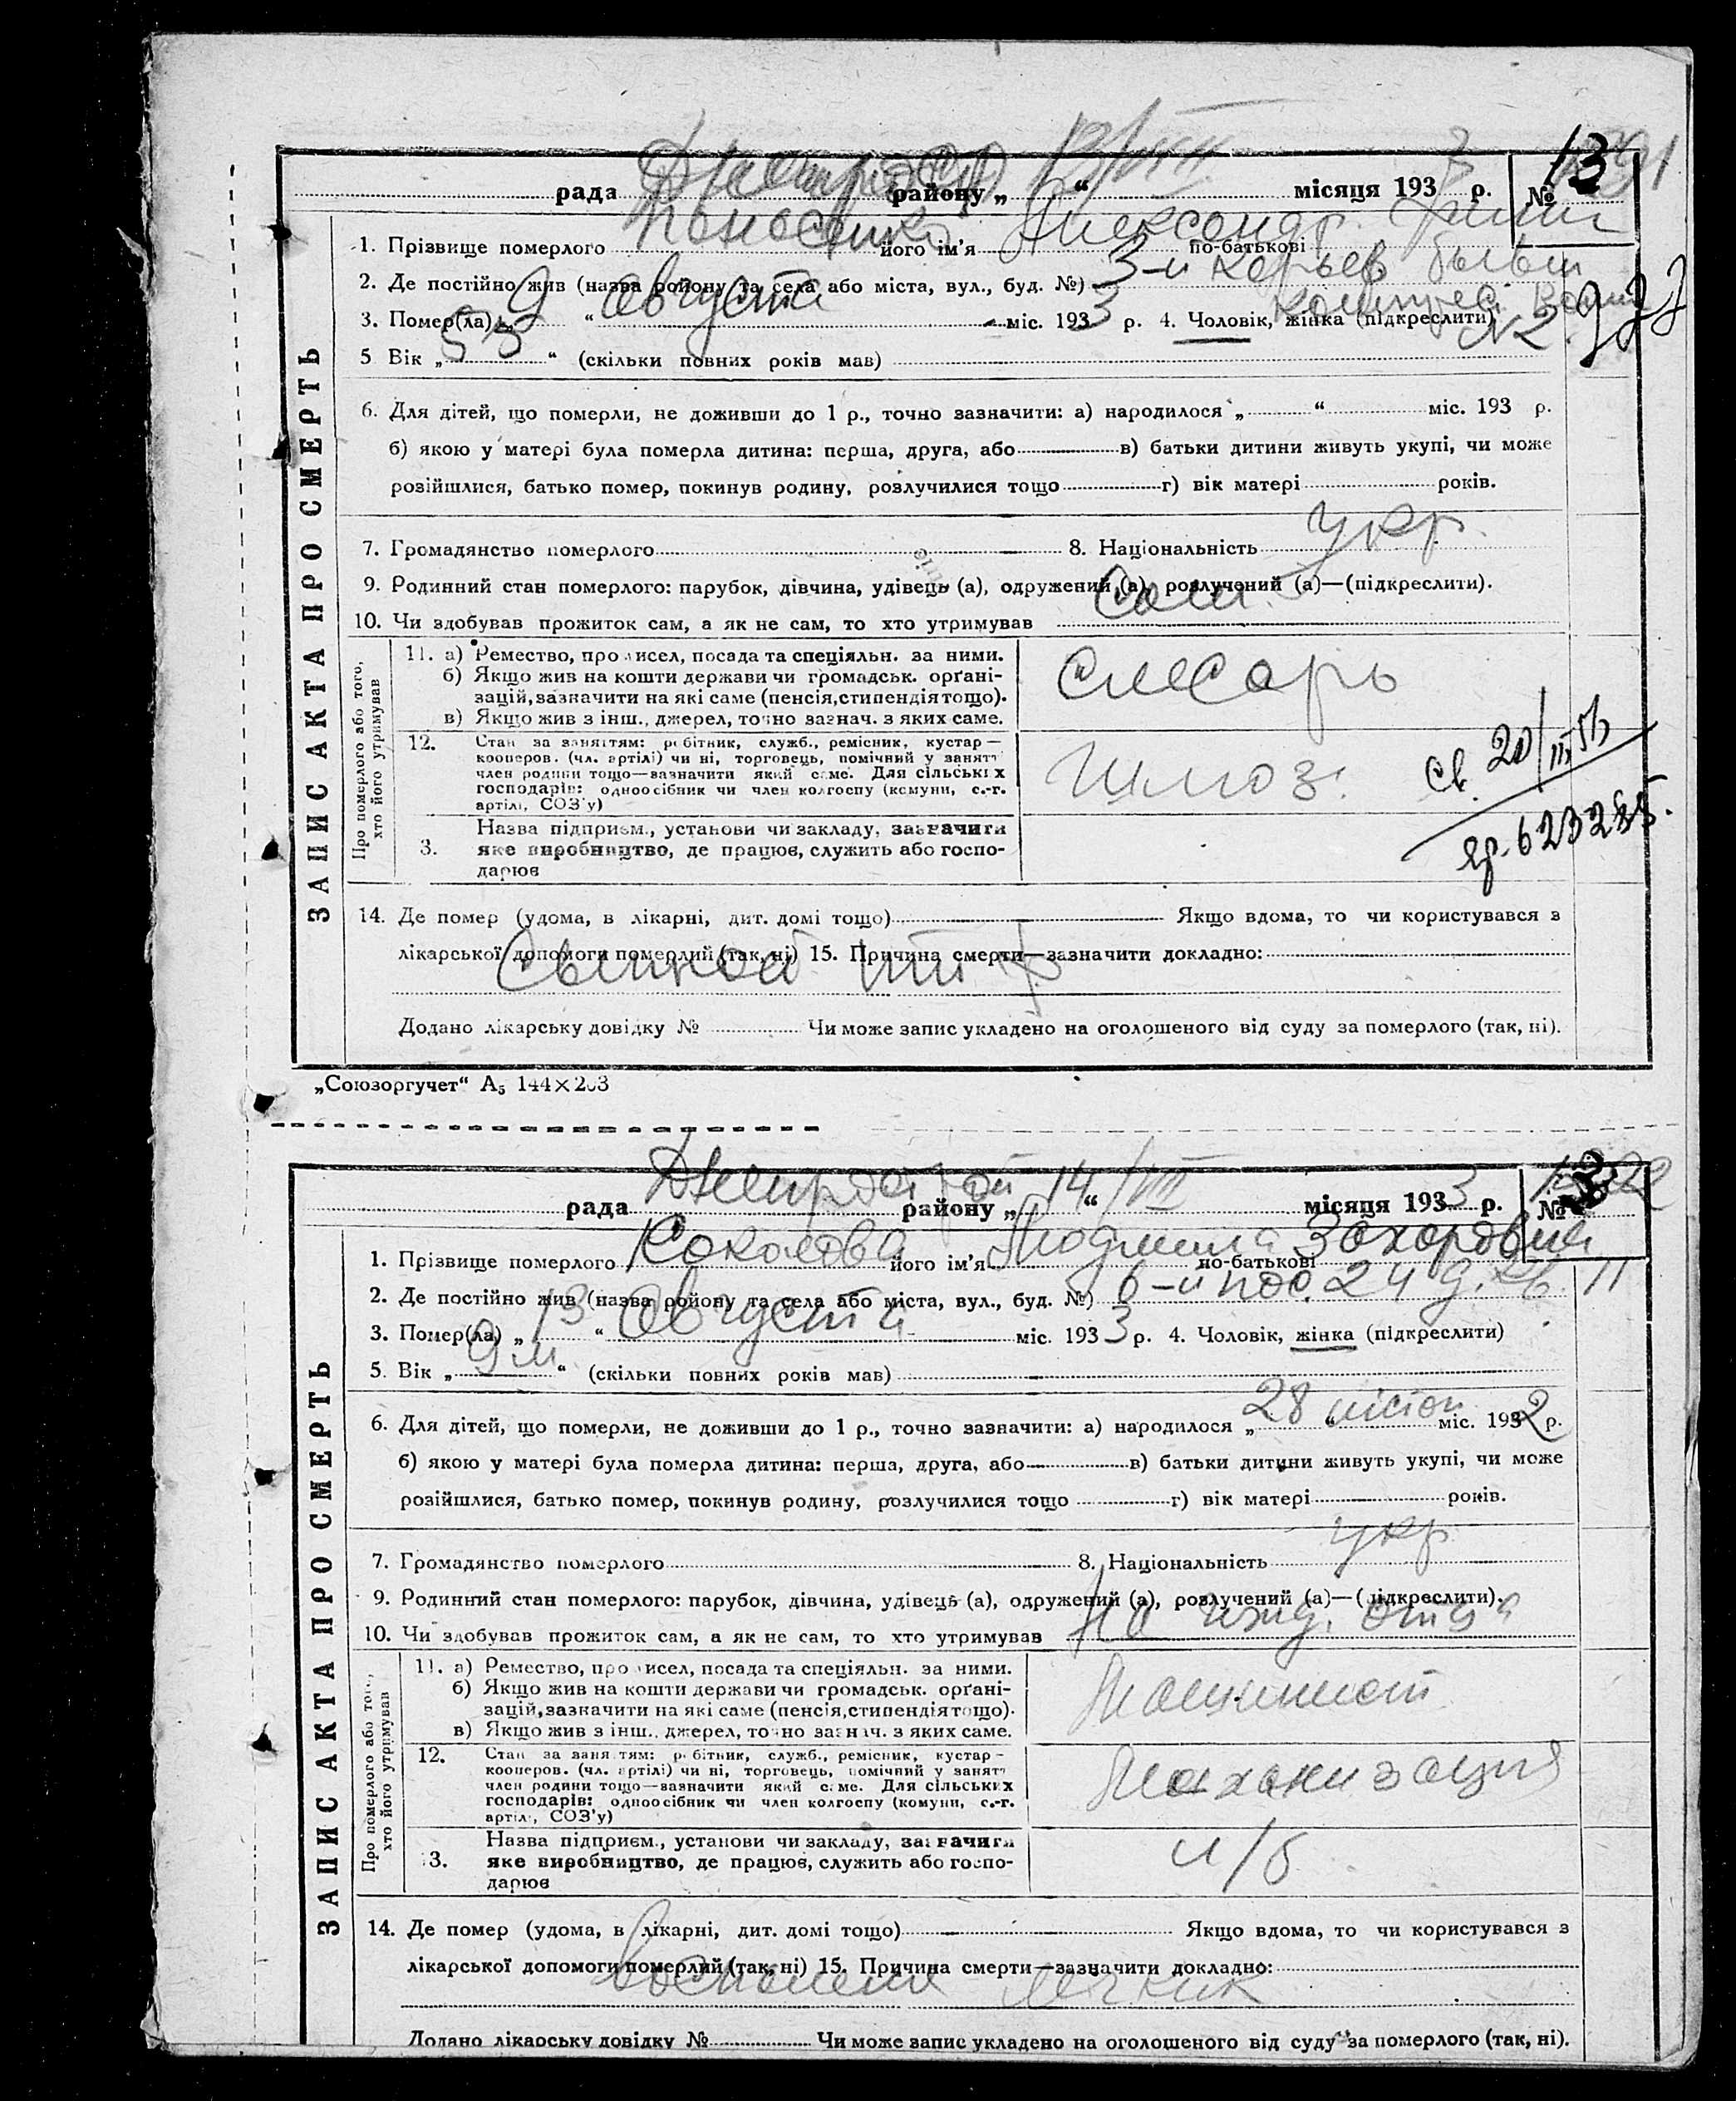 рада району „ “ 13/VIII місяця 1933 р. № 13
1. Прізвище померлого його ім’я Александр по-батькові
2. Де постійно жив (назва району та села або міста, вул., буд. №) 3-и
3. Помер(ла) „ 9 “ августа міс. 1933 р. 4. Чоловік, жінка (підкреслити)
№ 2
5 Вік „ 53 “ (скільки повних років мав)
6. Для дітей, що померли, не доживши до 1 р., точно зазначити: а) народилося „ “ міс. 193 р.
б) якою у матері була померла дитина: перша, друга, або в) батьки дитини живуть укупі, чи може
розійшлися, батько помер, покинув родину, розлучилися тощо г) вік матері років.
7. Громадянство померлого 8. Національність укр.
9. Родинний стан померлого: парубок, дівчина, удівець (а), одружений (а), розлучений (а)—(підкреслити).
10. Чи здобував прожиток сам, а як не сам, то хто утримував Сам
ЗАПИС АКТА ПРО СМЕРТЬ
Про померлого або того, хто його утримував
11. а) Ремество, промисел, посада та спеціяльн. за ними.
б) Якщо жив на кошти держави чи громадськ. орґані-
зацій, зазначити на які саме (пенсія, стипендія тощо).
в) Якщо жив з інш., джерел, точно зазнач. з яких саме.
слесарь
12. Стан за заняттям: робітник, служб., ремісник, кустар—
кооперов. (чл. артілі) чи ні, торговець, помічний у занятт
член родини тощо—зазначити який саме. Для сільських
господарів: одноосібник чи член колгоспу (комуни, с.-г.
артілі, СОЗ’у)
Шлюз.
Св. 20/III 51
яр. 623285.
3. Назва підприєм., установи чи закладу, зазначити
яке виробництво, де працює, служить або госпо-
дарює
14. Де помер (удома, в лікарні, дит. домі тощо) Якщо вдома, то чи користувався з
лікарської допомоги померлий (так, ні) 15. Причина смерти—зазначити докладно:
Сыпной тиф
Додано лікарську довідку № Чи може запис укладено на оголошеного від суду за померлого (так, ні).
„Союзоргучет“ А5 144×203
рада району „ 14/VIII “ місяця 1933 р. №
1. Прізвище померлого Соколова його ім’я Людмила по-батькові Захаровна
2. Де постійно жив (назва району та села або міста, вул., буд. №) 6-и пос. 24 д. кв. 11
3. Помер(ла) „ 13 “ Августа міс. 1933 р. 4. Чоловік, жінка (підкреслити)
5. Вік „ 9 м “ (скільки повних років мав)
6. Для дітей, що померли, не доживши до 1 р., точно зазначити: а) народилося „ 28 “ листоп міс. 1932 р.
б) якою у матері була померла дитина: перша, друга, або в) батьки дитини живуть укупі, чи може
розійшлися, батько помер, покинув родину, розлучилися тощо г) вік матері років.
7. Громадянство померлого 8. Національність укр
9. Родинний стан померлого: парубок, дівчина, удівець (а), одружений (а), розлучений (а)—(підкреслити).
10. Чи здобував прожиток сам, а як не сам, то хто утримував На ижд. отца
ЗАПИС АКТА ПРО СМЕРТЬ
Про померлого або того, хто його утримував
11. а) Ремество, промисел, посада та спеціяльн. за ними.
б) Якщо жив на кошти держави чи громадськ. орґані-
зацій, зазначити на які саме (пенсія, стипендія тощо).
в) Якщо жив з інш., джерел, точно зазнач. з яких саме.
Машинист
12. Стан за заняттям: робітник, служб., ремісник, кустар—
кооперов. (чл. артілі) чи ні, торговець, помічний у занятт
член родини тощо—зазначити який саме. Для сільських
господарів: одноосібник чи член колгоспу (комуни, с.-г.
артілі, СОЗ’у)
Механизация
3. Назва підприєм., установи чи закладу, зазначити
яке виробництво, де працює, служить або госпо-
дарює
п/б
14. Де помер (удома, в лікарні, дит. домі тощо) Якщо вдома, то чи користувався з
лікарської допомоги померлий (так, ні) 15. Причина смерти—зазначити докладно:
Воспаление легких
Додано лікарську довідку № Чи може запис укладено на оголошеного від суду за померлого (так, ні).